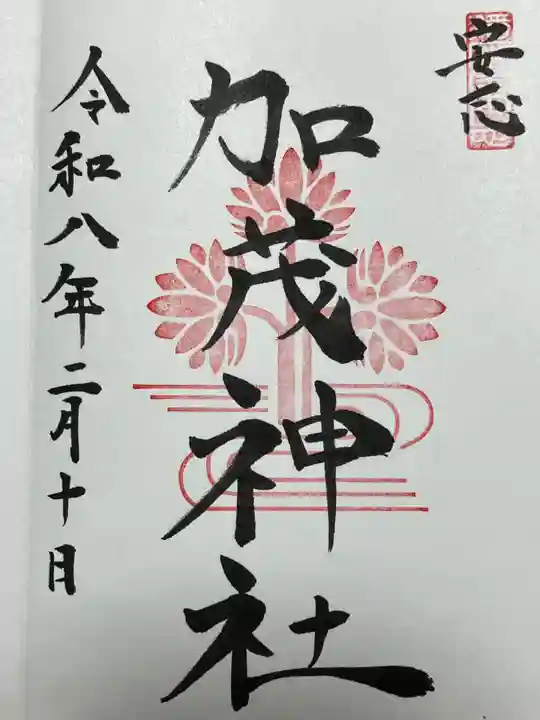 安心
加茂神社
令和八年二月十日